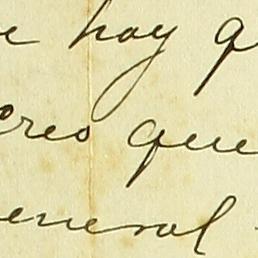 e hay q
creo que
eneral